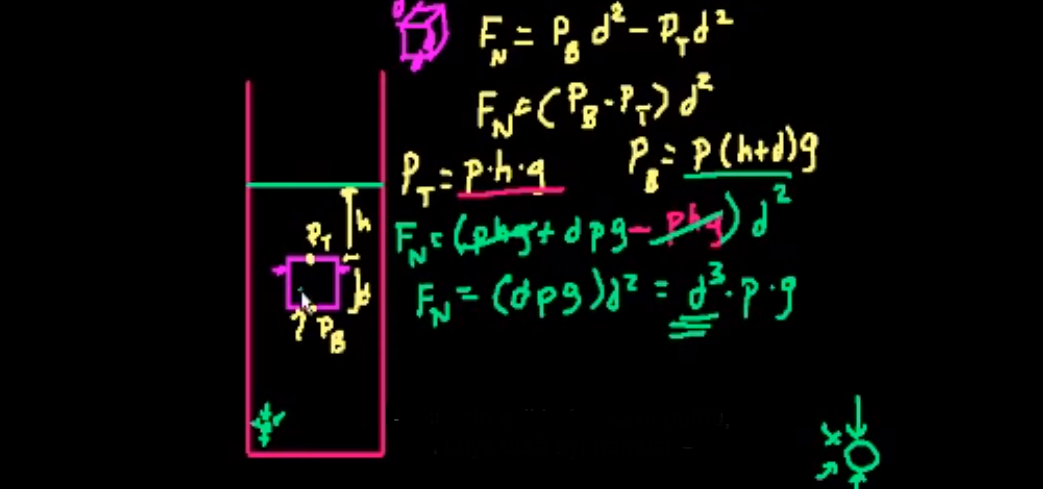 d
F_N = P_B d² - P_T d²
F_N = (P_B - P_T) d²
P_T = p·h·g
P_B = p(h+d)g
F_N = (phg + dpg - phg) d²
F_N = (dpg)d² = d³·p·g
h
P_T
d
? P_B